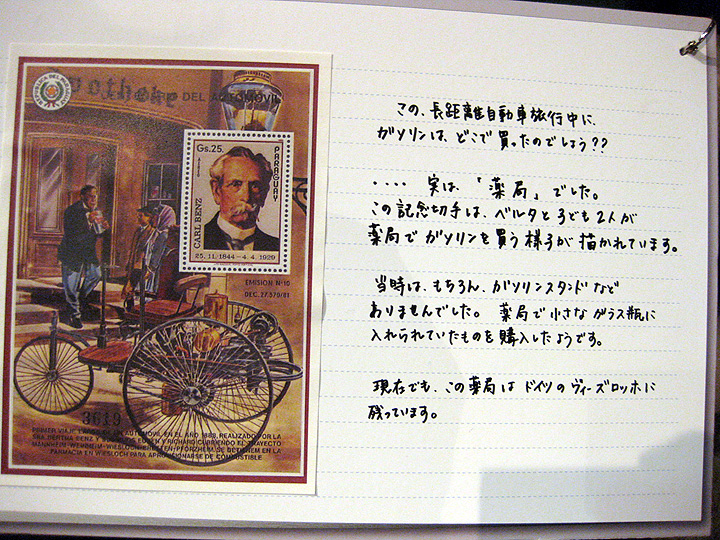 Apotheke
DEL AUTOMOVIL
Gs.25.
PARAGUAY
AEREO
CARL BENZ
25. 11. 1844 – 4. 4. 1929
EMISION Nº10
DEC. 27.579/81
3619
PRIMER VIAJE LARGO DE UN AUTOMOVIL EN EL AÑO 1888, REALIZADO POR LA
SRA. BERTHA BENZ Y SUS HIJOS EUGEN Y RICHARD CUBRIENDO EL TRAYECTO
MANNHEIM-WEINHEIM-WIESLOCH-BRETTEN-PFORZHEIM. SE DETIENEN EN LA
FARMACIA EN WIESLOCH PARA APROVISIONARSE DE COMBUSTIBLE
この、長距離自動車旅行中に、
ガソリンは、どこで買ったのでしょう??
・・・・ 実は、「薬局」でした。
この記念切手は、ベルタと子ども2人が
薬局でガソリンを買う様子が描かれています。
当時は、もちろん、ガソリンスタンドなど
ありませんでした。薬局で小さなガラス瓶に
入れられていたものを購入したようです。
現在でも、この薬局はドイツのヴィーズロッホに
残っています。